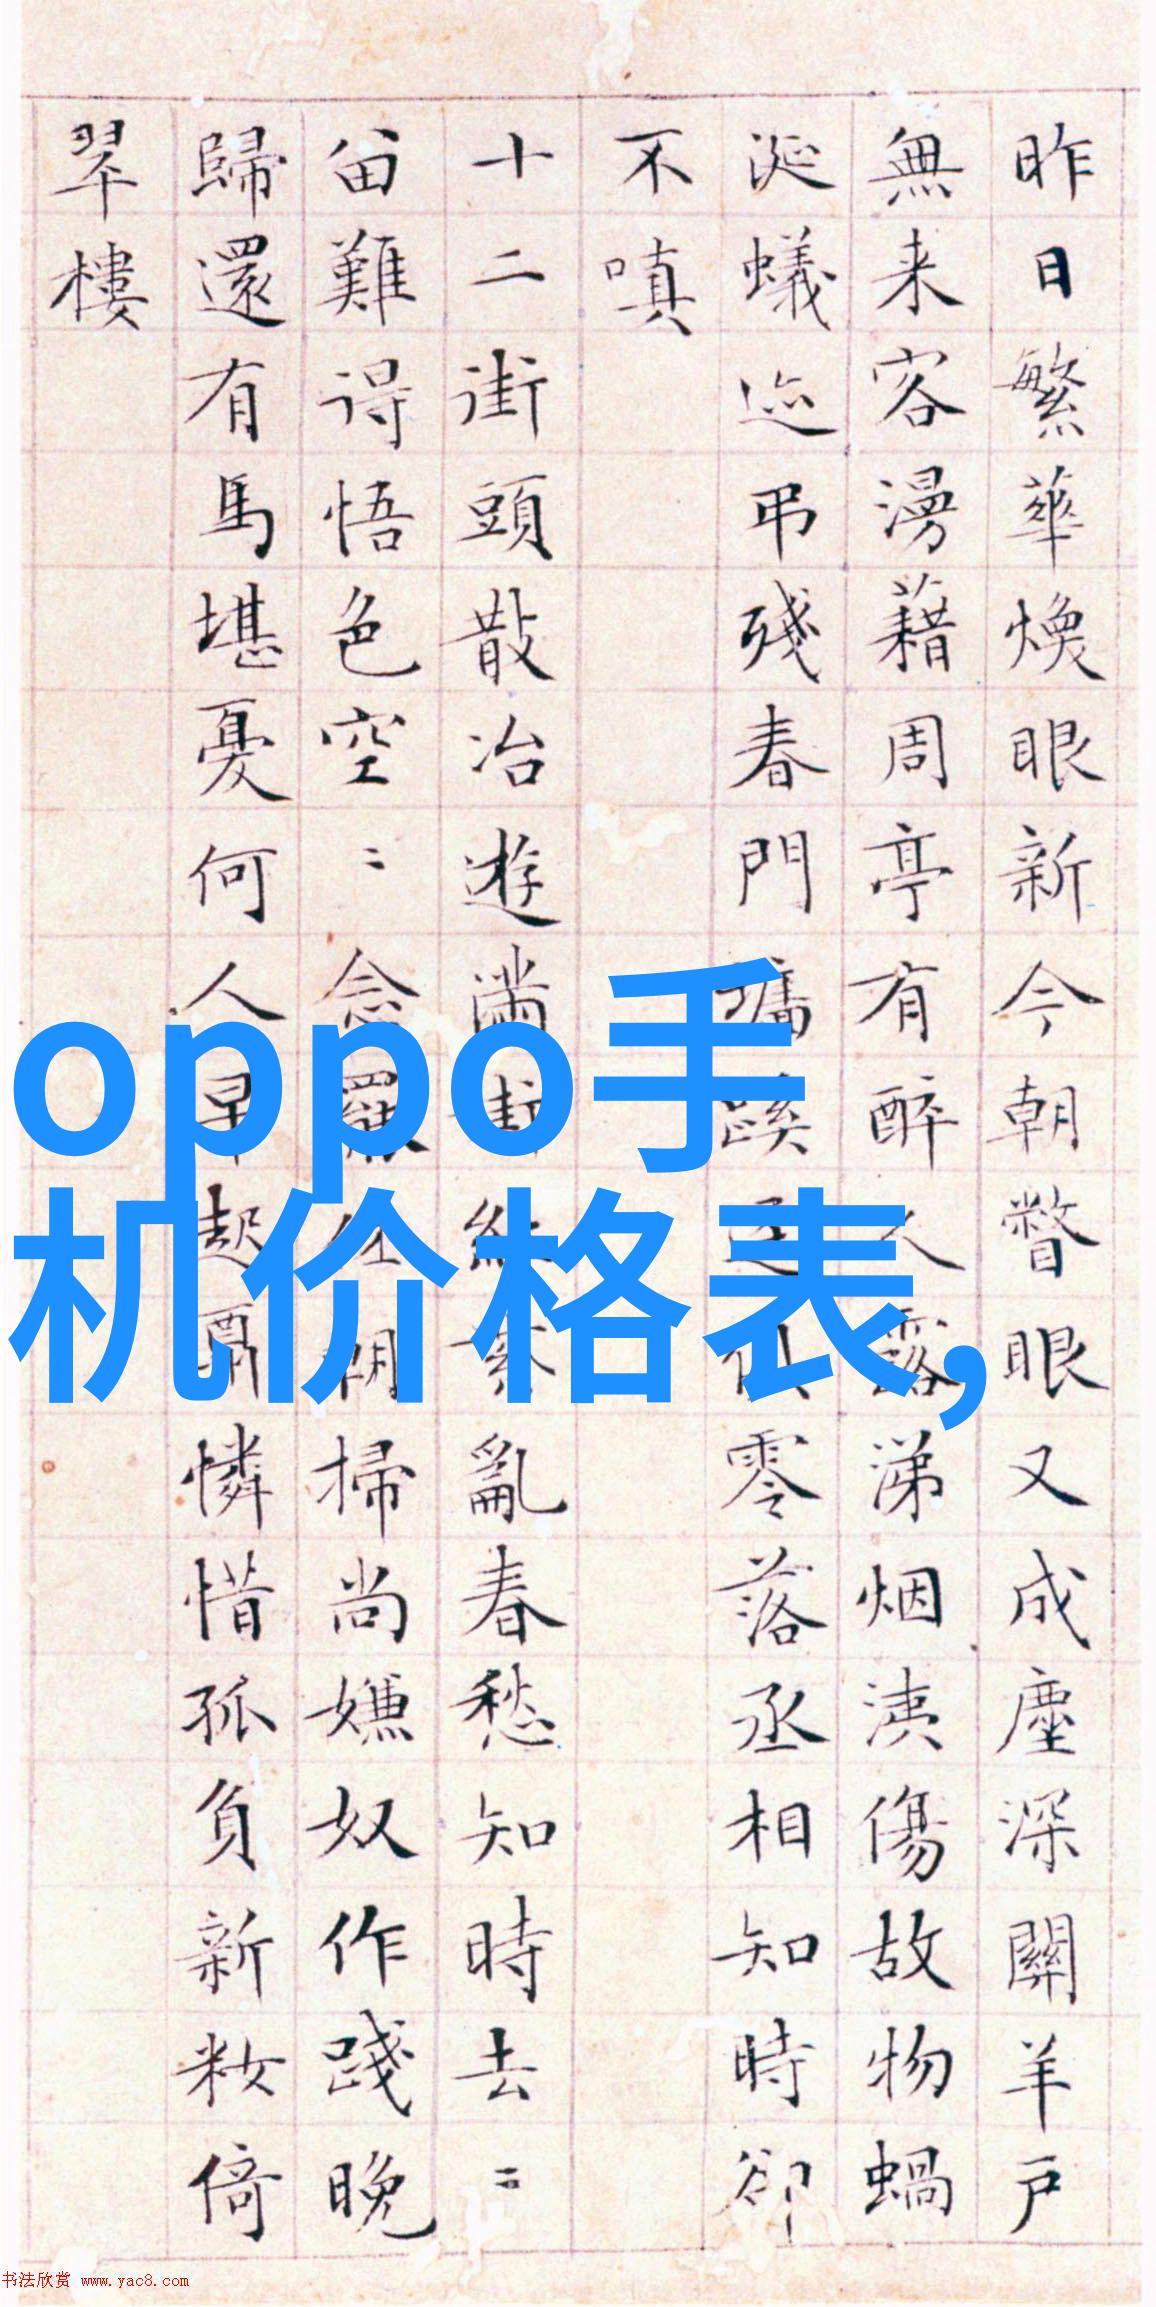 昨日繁華煥眼新今朝瞥眼又成塵深關羊戶
無来客漫藉周亭有醉人露涕烟洟傷故物蝸
涎蟻迹弔殘春門蹊零落丞相知時卻
不嗔
十二街頭散冶遊滿街紅紫亂春愁知時去〻
畄難得悟色空〻念朝掃尚嫌奴作踐晚
歸還有馬堪憂何人早起憐惜孤負新妝倚
翠樓
oppo手
机价格表,
书法欣赏 www.yac8.com